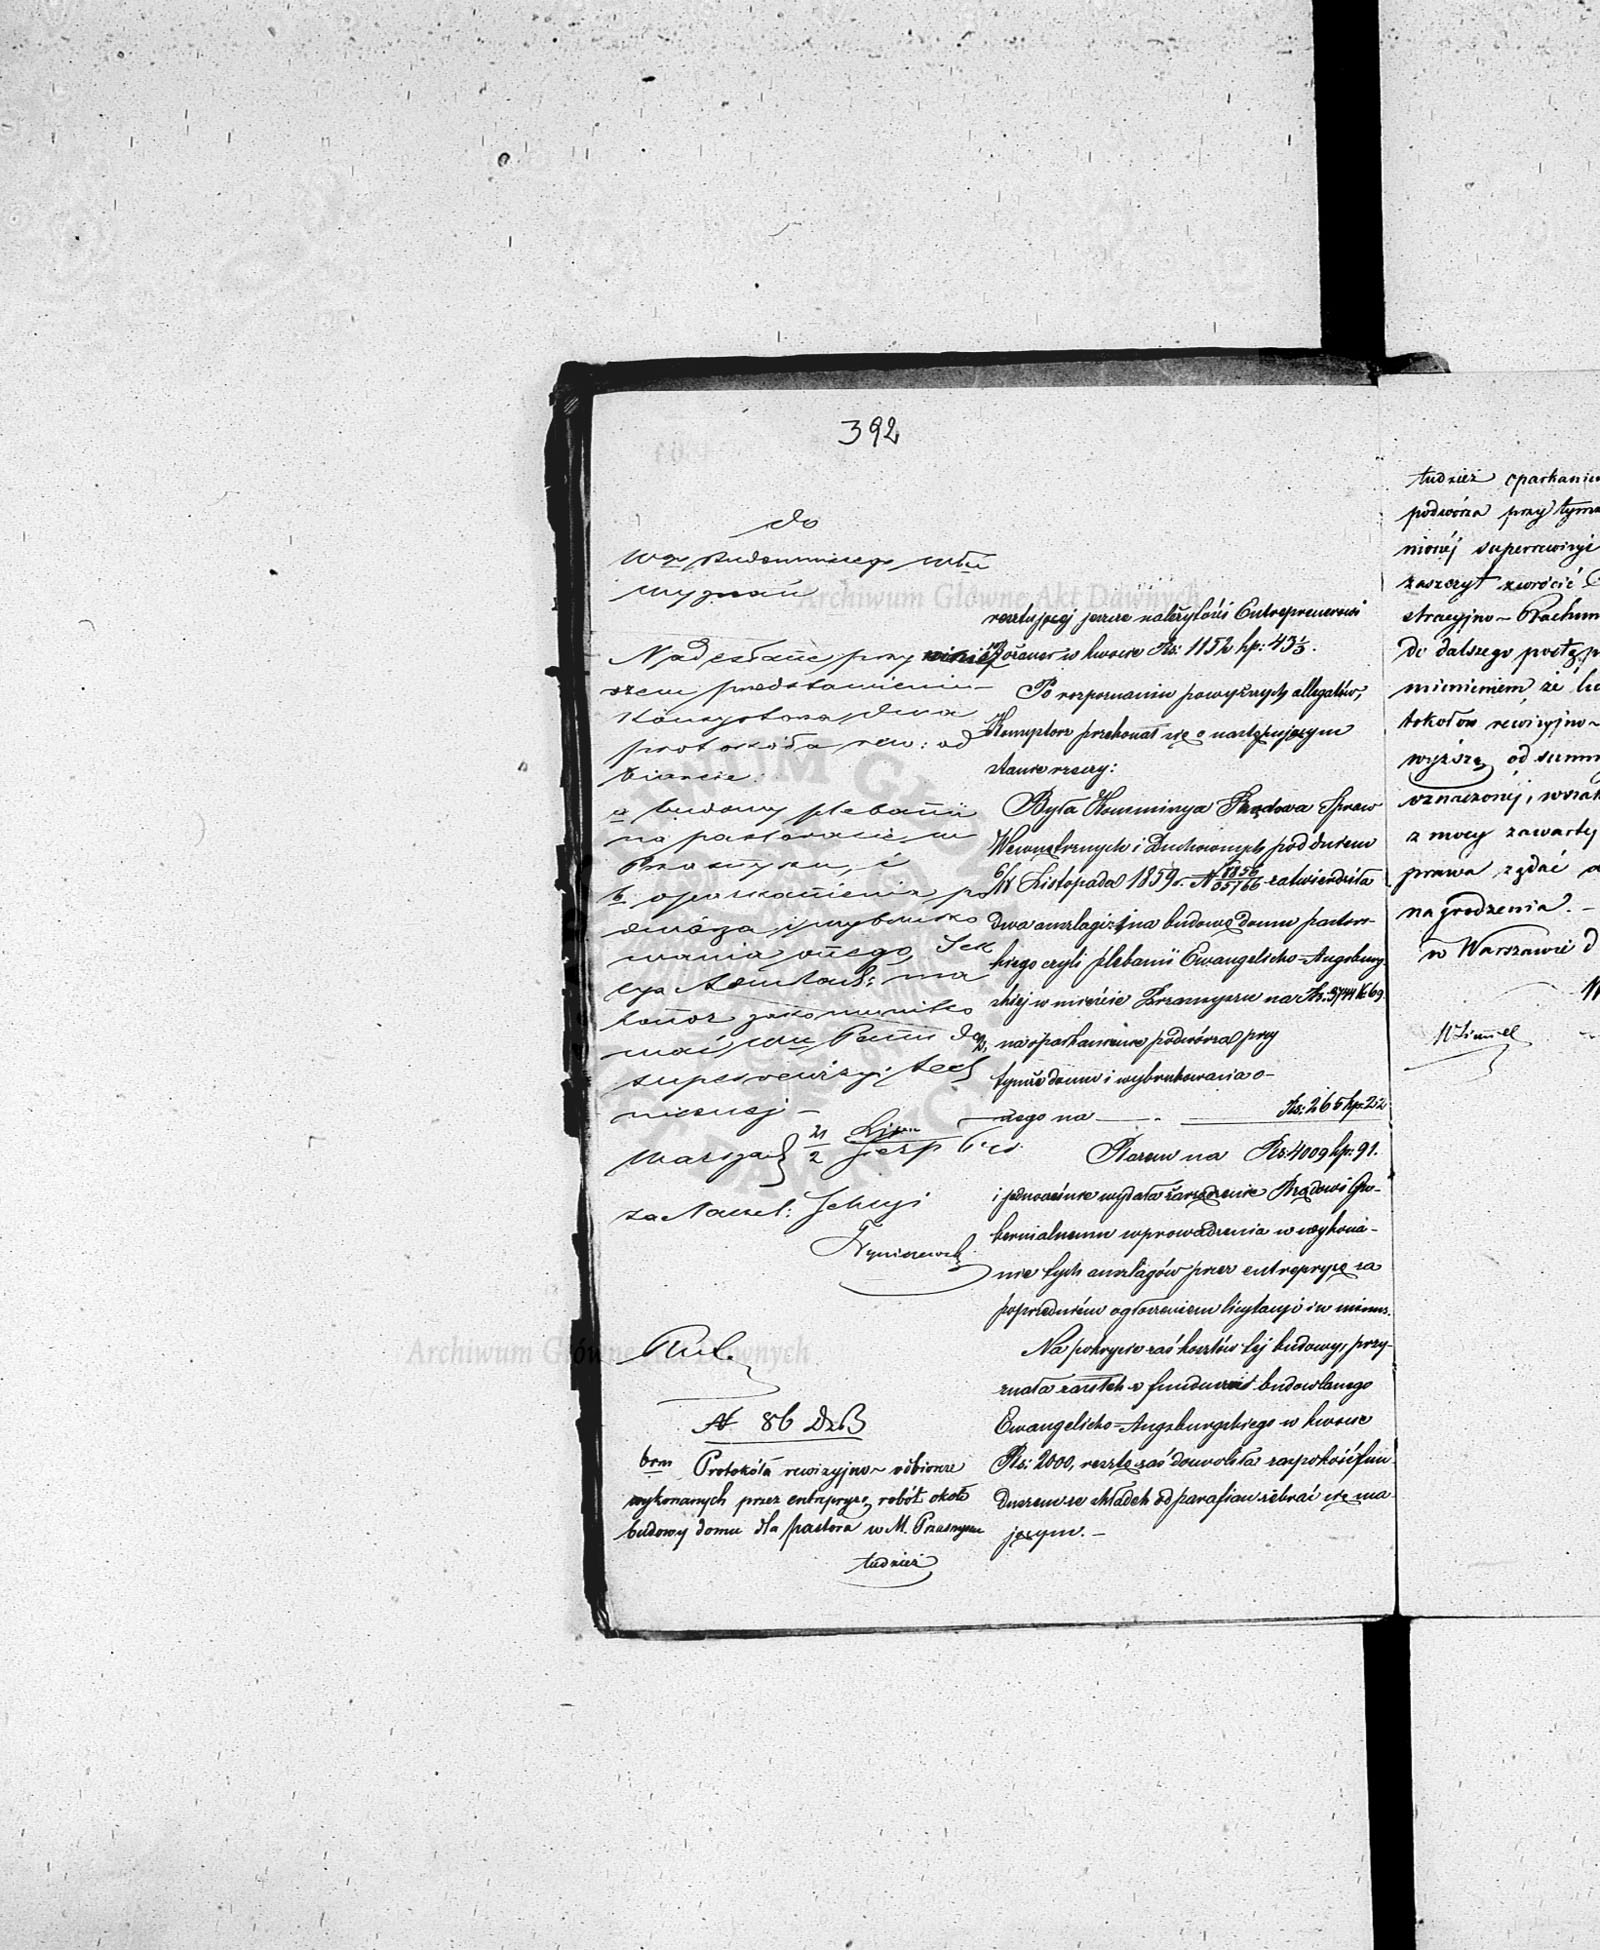 392
do
Wgo Budowniczego Włu
Wyznań
Nadesłane przy niniej
szem przedstawieniu
Konsystorza, dwa
protokóła rew: od
biorcze.
a budowy plebanii
na pastoracie w
Przasnyszu, i
b oparkanienia po
dwórza i wybruko
wania onego, Sek
cya ma
honor zakomuniko
wać Wu Panu do
superrewizyi tech
nicznej –
Warszawa 21/2
za Naczel: Sekcyi
№ 86 DzB
Protokóła rewizyjno~ odbiorcze
wykonanych przez entrepryzę robót około
budowy domu dla pastora w M. Przasnyszu
tudzież
resztującej jeszcze należytości Entreprenerowi
w kwocie Rs: 1152 kp: 43½.
Po rozpoznaniu powyższych allegatów,
przekonał się o następującym
stanie rzeczy:
Była Kommissya Rządowa Spraw
Wewnętrznych i Duchownych pod dniem
6/18 Listopada 1859 r. zatwierdziła
dwa anszlagi: 1 na budowę domu pastor-
skiego czyli plebanii Ewangelicko=Augsburg
skiej w mieście Przasnyszu na Rs: 3744 k 69
2, na oparkanienie podwórza przy
tymże domu i wybrukowania o-
nego na Rs: 265 kp: 22
Razem na Rs: 4009 kp: 91.
i jednocześnie wydała zarządzenie Rządowi Gu-
bernialnemu wprowadzenia w wykona-
nie tych anszlagów przez entrepryzę za
poprzedniém ogłoszeniem licytacyi in minus.
Na pokrycie zaś kosztów tej budowy, przy-
znała zasiłek z funduszu budowlanego
Ewangelicko=Augsburgskiego w kwocie
Rs: 2000, resztę zaś dozwoliła zaspokoić fun
duszem ze składek od parafian zebrać się ma-
jącym. –
tudzież oparkanien
podwórza przy tym
nionéj superrewizyi
zaszczyt zwrócić
stracyjno~ Rachun
do dalszego postęp
mienieniem że
tokołów rewizyjno~
wyższą od summ
wznaczonéj, wszak
z mocy zawarty
prawa żądać
nagrodzenia. –
w Warszawie d